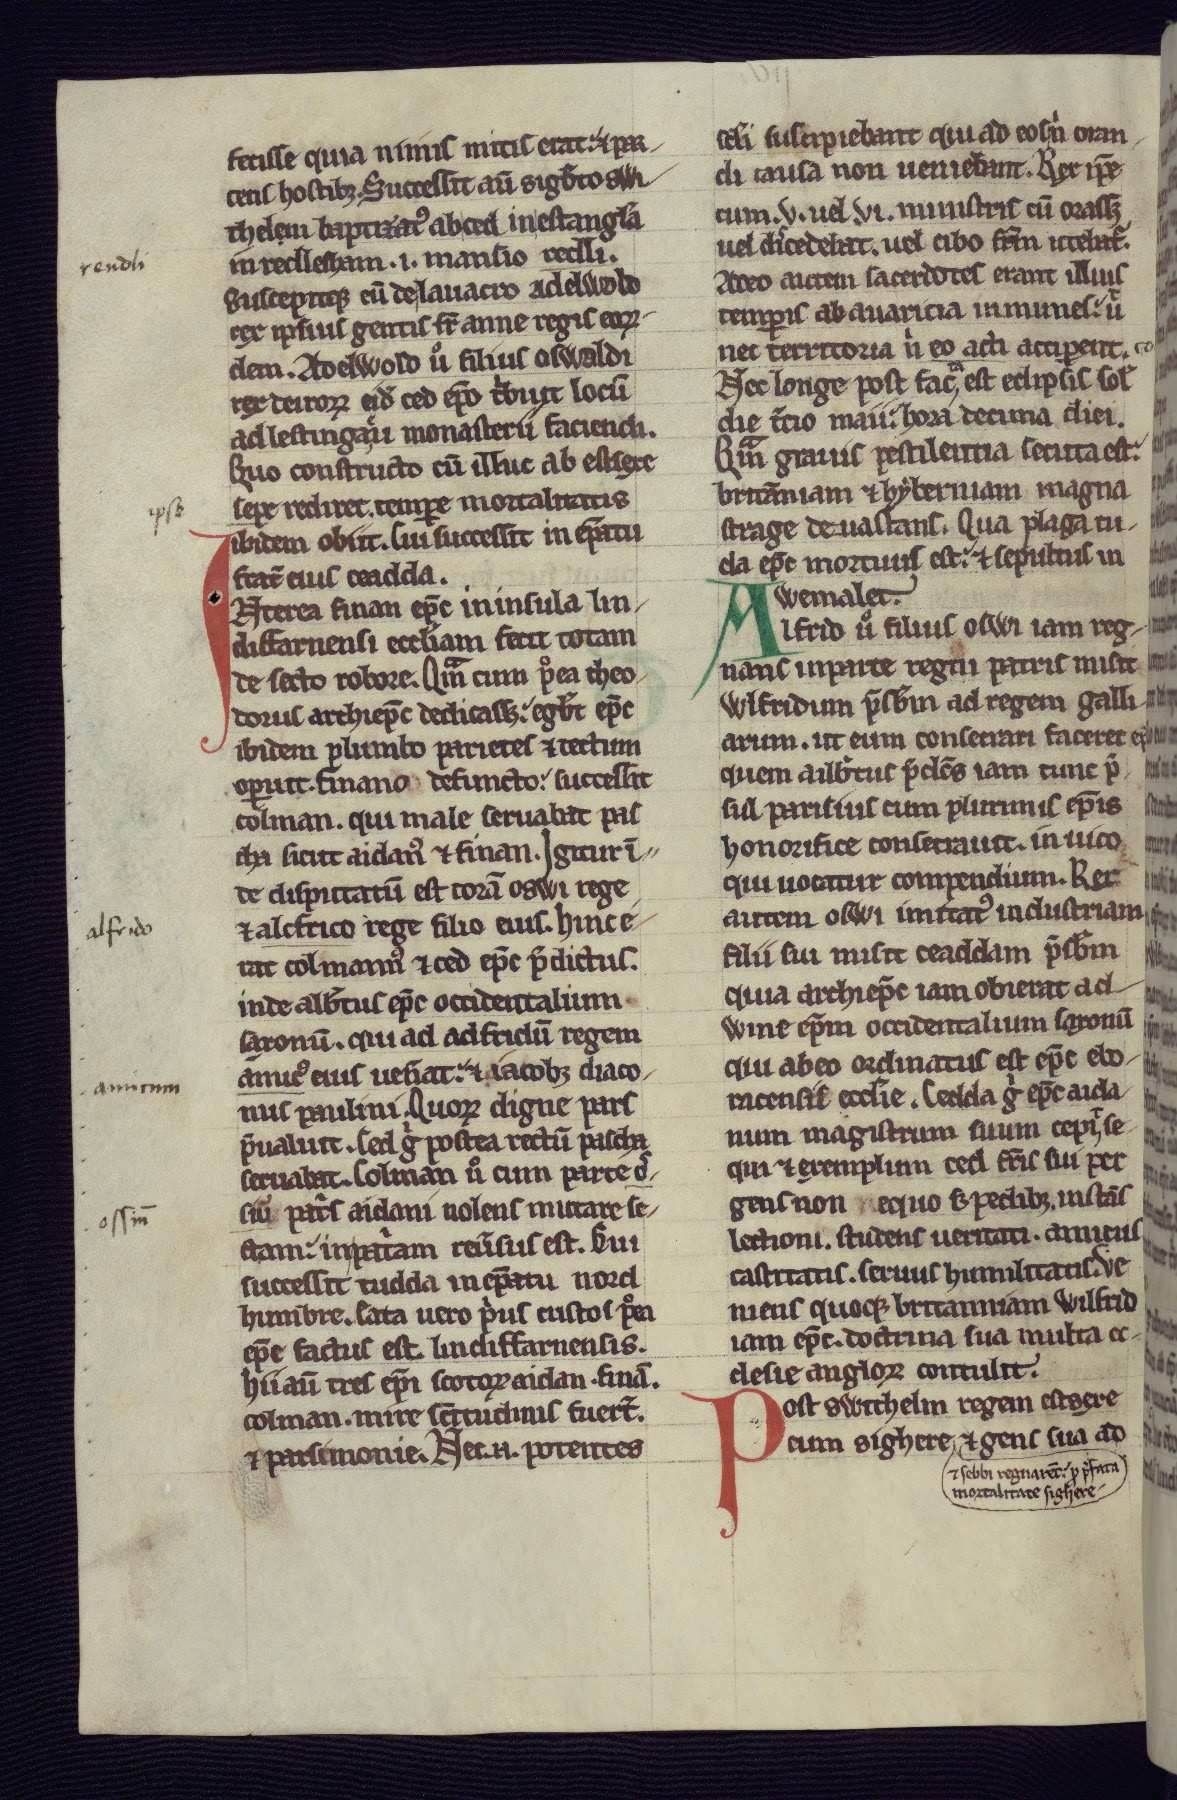 fecisse quia nimis mitis erat: ⁊ par-
cens hostibꝫ. Successit aū sigb̄to swi-
thelem baptizatꝰ ab ced in estangl̄a
in redlesham .i. mansio redli.
rendli
Suscepitqꝫ eū de lauacro adelwold
rex ipsius gentis fr̄ anne regis eorꝫ-
dem. Adelwold ů filius oswaldi
rex deirorꝫ eid̄ ced ep̄o t̄buit locū
ad lestingaͥu monasterii faciendi.
Quo constructo cū illuc ab estsexe
sepe rediret. tempe mortalitatis
ipso
ibidem obiit. Cui successit in ep̄atu
frat̄ eius ceadda.
INterea finan ep̄c in insula lin-
diffarnensi eccl̄iam fecit totam
de secto robore. Qm̄ cum p̊ea theo-
dorus archiep̄c dedicassꝫ: egb̄t ep̄c
ibidem plumbo parietes ⁊ tectum
operuit. finano defuncto: successit
colman. qui male seruabat pas
cha sicut aidanꝰ ⁊ finan. Igitur ī-
de disputatū est corā oswi rege
⁊ alcfrico rege filio eius. hinc e-
alfrido
rat colmannꝰ ⁊ ced ep̄c p̄dictus.
inde alb̄tus ep̄c occidentalium
saxonū. qui ad adfridū regem
āmicꝰ eius uen̄at: ⁊ iacobꝫ diaco-
amicum
nus paulini. Quorꝫ digne pars
p̄ualuit. Ced gͥ postea rectū pascha
seruabat. Colman ů cum parte
siū pat̄s aidani nolens mutare se-
ossm̄
ctam: in patͥam reūsus est. Cui
successit tudda in ep̄atu nord
humbre. Cata uero pͥus custos p̊ea
ep̄c factus est. lindiffarnensis.
hii aū tres ep̄i scotorꝫ aidan. finā.
colman. mire sēctitudinis fuert̄.
⁊ parsimonie. Nec .n. potentes
sc̄li suscipiebant qui ad eos n̄ oran-
di causa non ueniebant. Rex ip̄e
cum .v. uel .vi. ministris cū orassꝫ
uel discedebat. uel cibo fr̄m utebat̄.
Adeo autem sacerdotes erant illius
temporis ab auaricia inmunes: ut
nec territoria nͥ eo acti acciperent. co
Nec longe post facͣ est eclipsis sol̄
die t̄cio maii: hora decima diei.
Qm̄ grauis pestilentia secuta est:
britānniam ⁊ hyberniam magna
strage deuastans. Qua plaga tu-
da ep̄c mortuus est: ⁊ sepultus in
wemalet.
Alfrid ů filius oswi iam reg-
nans in parte regni patris misit
Wlfridum p̄sb̄m ad regem galli-
arum. ut eum consecrari faceret ep̄
quem ailb̄tus p̄clēs iam tunc p̄-
sul parisius cum plurimis ep̄is
honorifice consecrauit. in uico
qui uocatur compendium. Rex
autem oswi imitatꝰ industriam
filii sui misit ceaddam p̄sb̄m
quia archiep̄c iam obierat ad
Wine ep̄m occidentalium saxonū
qui ab eo ordinatus est ep̄c ebo-
racensis eccl̄ie. Cedda gͥ ep̄c aida-
num magistrum suum cepit se-
qui ⁊ exemplum ced fr̄is sui per
gens non equo s̄ pedibꝫ. instās
lectioni. studens ueritati. amicus
castitatis. seruus humilitatis. Ve
niens quoqꝫ britanniam Wilfrid
iam ep̄c. doctrina sua multa ec-
clesie anglorꝫ contulit.
Post swithelm regem estsexe
cum sighere ⁊ gens sua ad
⁊ sebbi regnaret: p p̄fata
mortalitate sighere